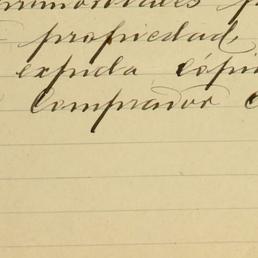 propiedad,
expida cópi
comprador